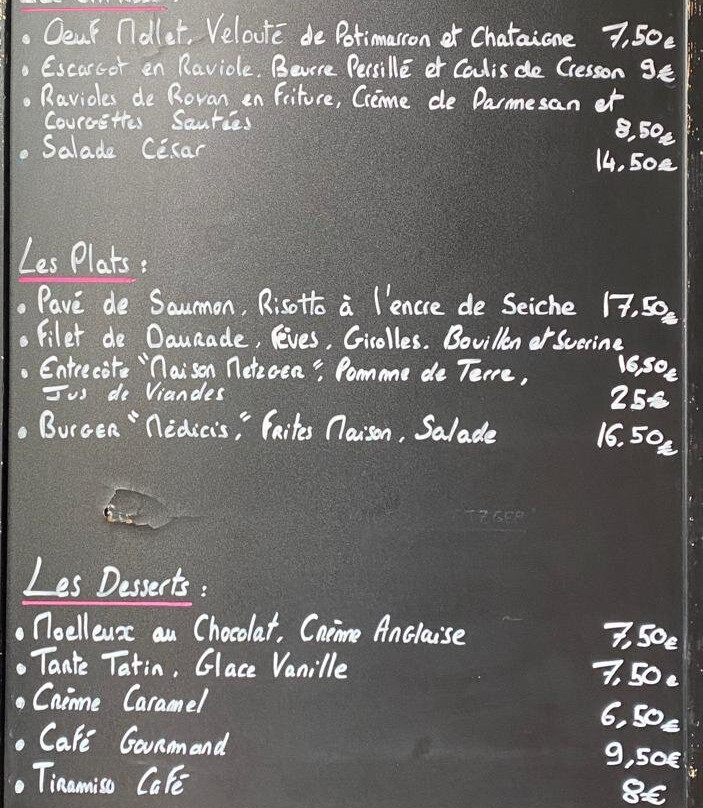 • Oeuf Mollet, Velouté de Potimarron et Chataigne 7,50€
• Escargot en Raviole, Beurre Persillé et Coulis de Cresson 9€
• Ravioles de Royan en Friture, Crème de Parmesan et
Courgettes Sautées 8,50€
• Salade César 14,50€
Les Plats :
• Pavé de Saumon, Risotto à l'encre de Seiche 17,50€
• Filet de Daurade, Fèves, Girolles, Bouillon et Sucrine
16,50€
• Entrecôte "Maison Metzger", Pomme de Terre,
Jus de Viandes 25€
• Burger "Médicis", Frites Maison, Salade 16,50€
Les Desserts :
• Moelleux au Chocolat, Crème Anglaise 7,50€
• Tarte Tatin, Glace Vanille 7,50€
• Crème Caramel 6,50€
• Café Gourmand 9,50€
• Tiramiso Café 8€